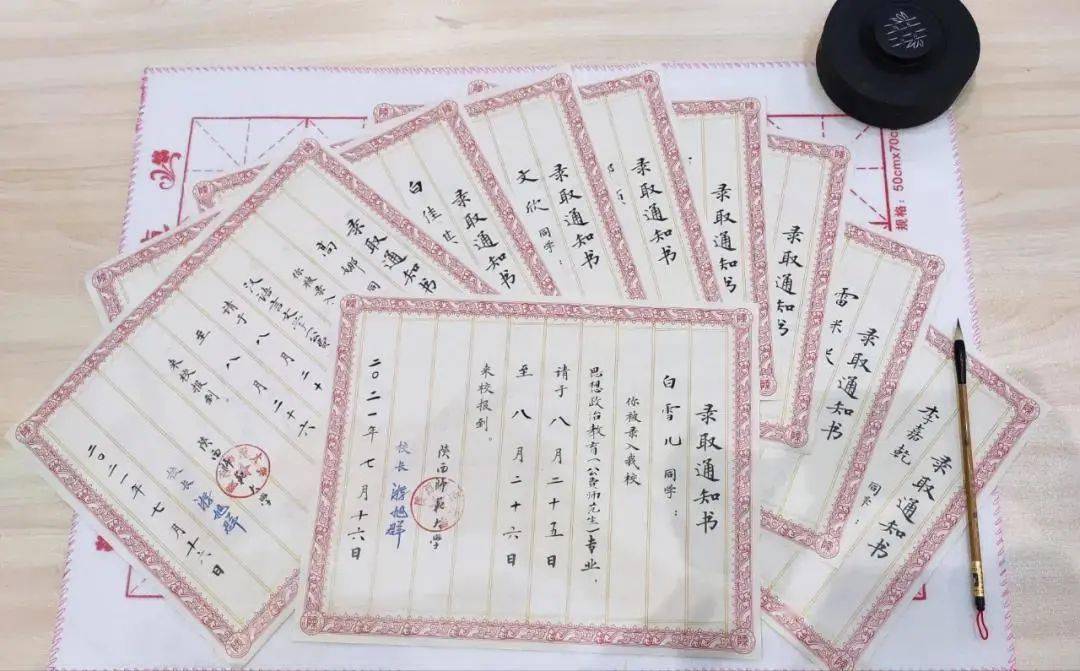 录取通知书
白雪儿 同学：
你被录入我校
思想政治教育（公费师范生）专业，
请于八月二十五日
至八月二十六日
来校报到。
陕西师范大学
校长 游旭群
二〇二一年七月十六日
录取通知书
高娜 同
你被录入
汉语言文学
请于八月二十
至八月二十六
来校报到。
陕西师范大学
校长 游旭群
二〇二一年七月十六日
录取通知书
白佳
录取通知书
文欣 同学：
录取通知书
录取通知书
录取通知书
录取通知书
雷米
录取通知书
李嘉乾 同学：
规格：50cmx70cm